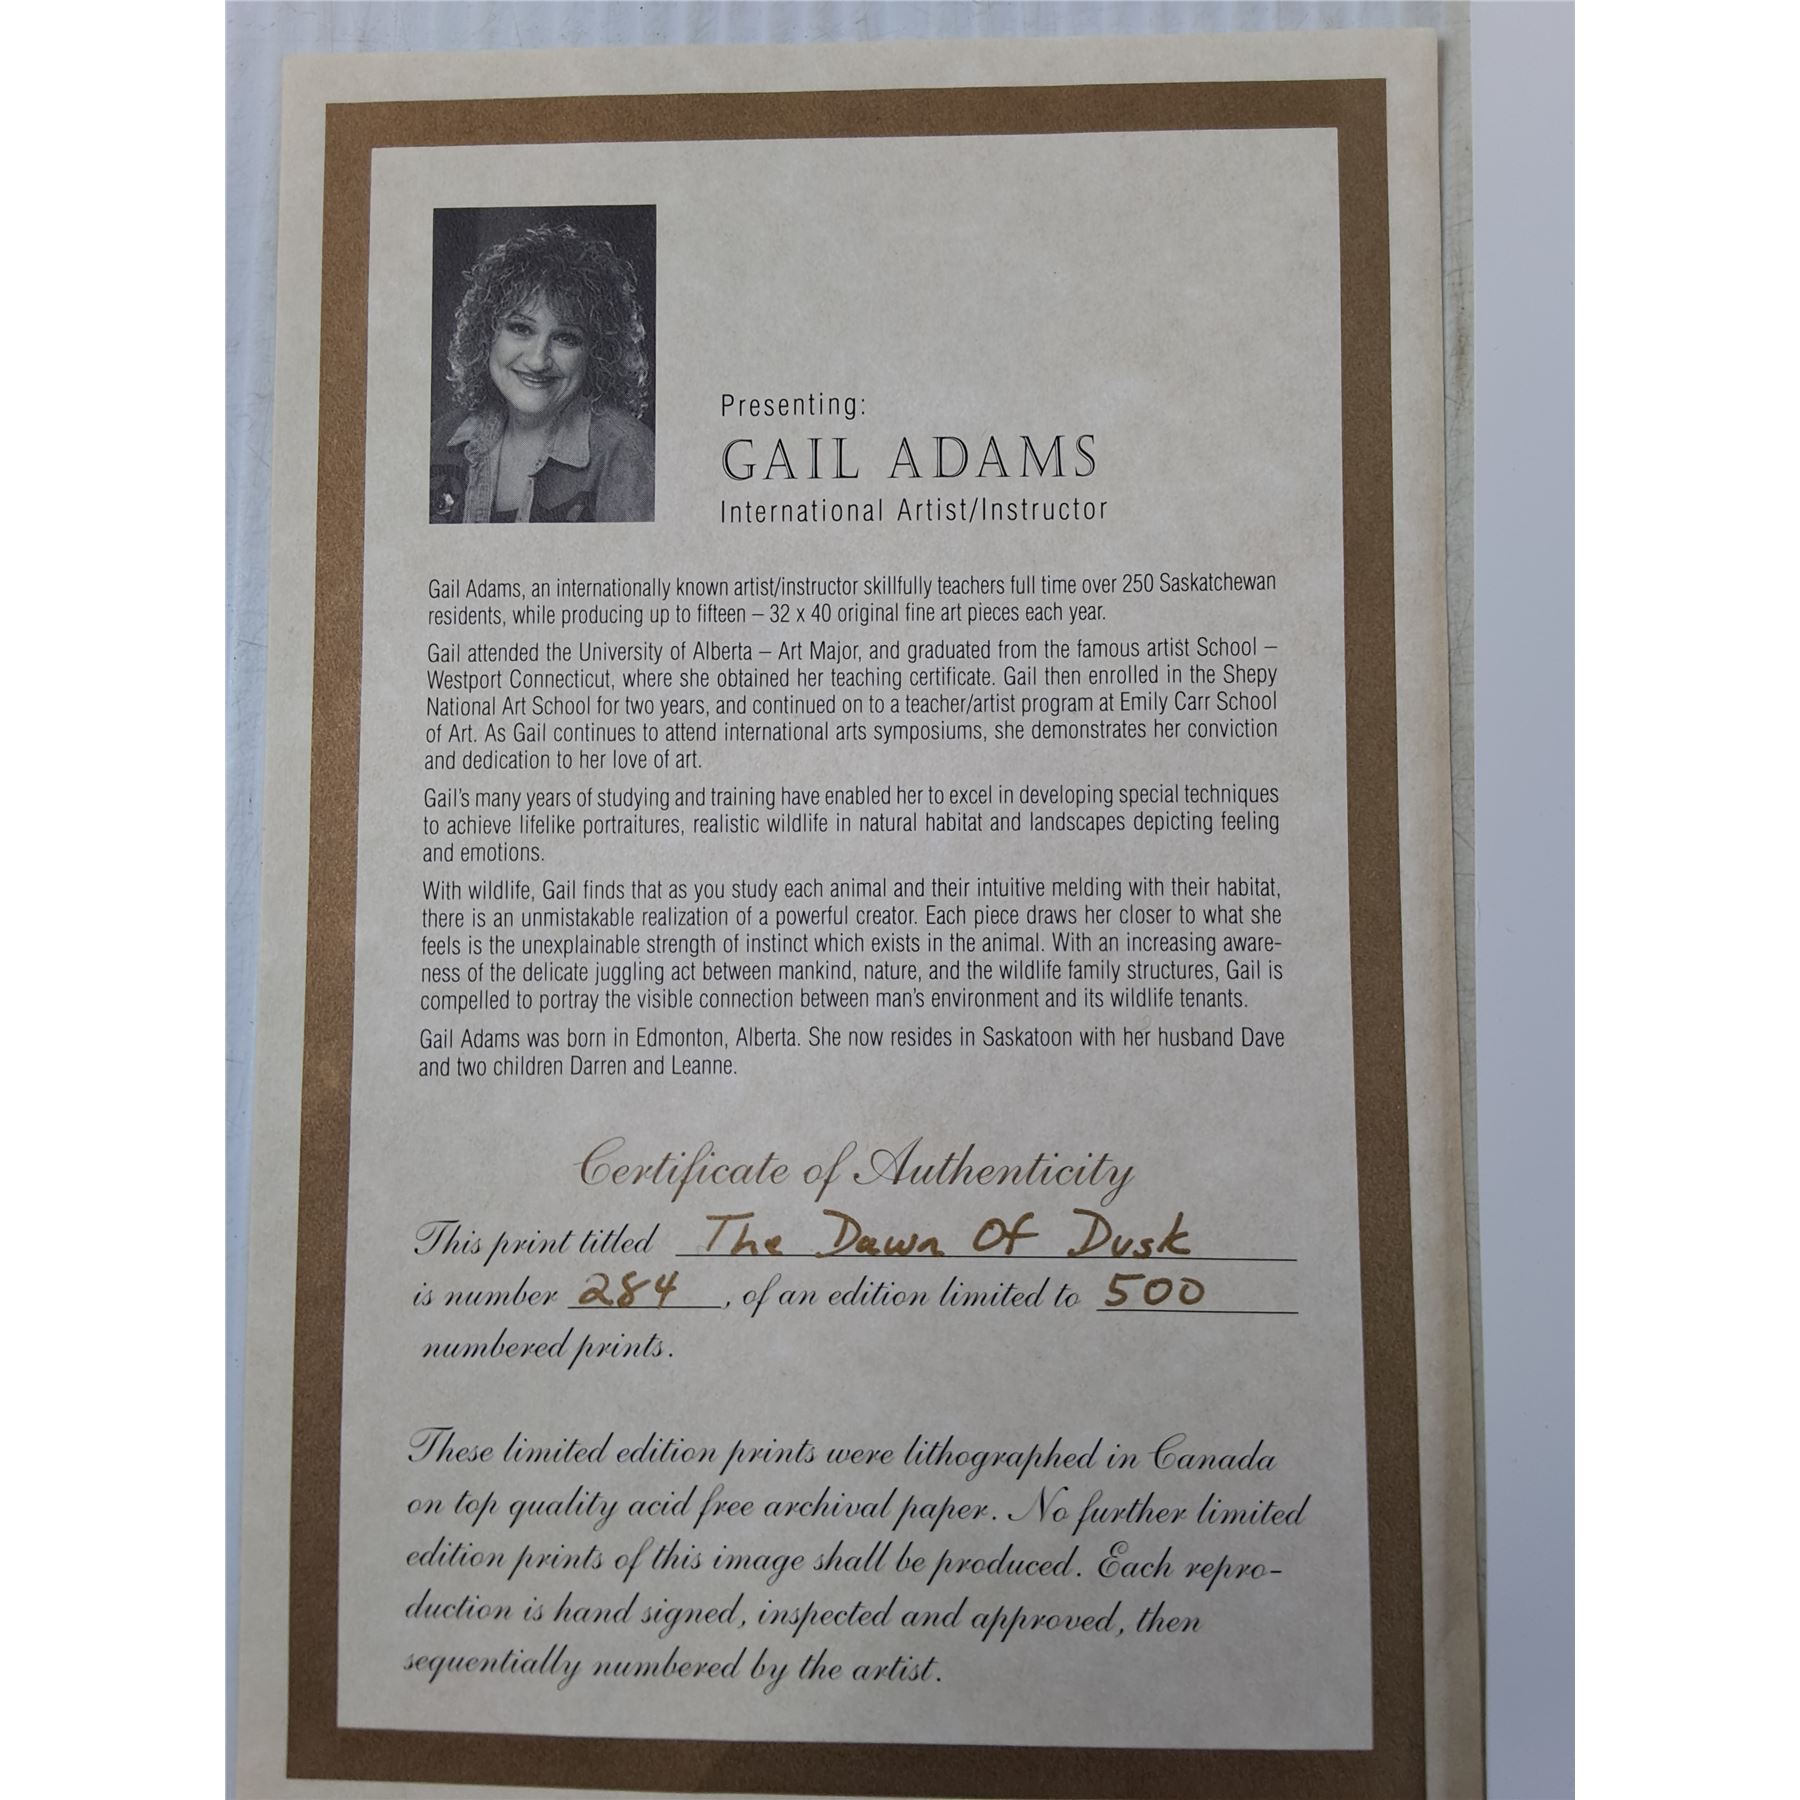 Presenting:
GAIL ADAMS
International Artist/Instructor
Gail Adams, an internationally known artist/instructor skillfully teachers full time over 250 Saskatchewan
residents, while producing up to fifteen – 32 x 40 original fine art pieces each year.
Gail attended the University of Alberta – Art Major, and graduated from the famous artist School –
Westport Connecticut, where she obtained her teaching certificate. Gail then enrolled in the Shepy
National Art School for two years, and continued on to a teacher/artist program at Emily Carr School
of Art. As Gail continues to attend international arts symposiums, she demonstrates her conviction
and dedication to her love of art.
Gail's many years of studying and training have enabled her to excel in developing special techniques
to achieve lifelike portraitures, realistic wildlife in natural habitat and landscapes depicting feeling
and emotions.
With wildlife, Gail finds that as you study each animal and their intuitive melding with their habitat,
there is an unmistakable realization of a powerful creator. Each piece draws her closer to what she
feels is the unexplainable strength of instinct which exists in the animal. With an increasing aware-
ness of the delicate juggling act between mankind, nature, and the wildlife family structures, Gail is
compelled to portray the visible connection between man's environment and its wildlife tenants.
Gail Adams was born in Edmonton, Alberta. She now resides in Saskatoon with her husband Dave
and two children Darren and Leanne.
Certificate of Authenticity
This print titled The Dawn Of Dusk
is number 284, of an edition limited to 500
numbered prints.
These limited edition prints were lithographed in Canada
on top quality acid free archival paper. No further limited
edition prints of this image shall be produced. Each repro-
duction is hand signed, inspected and approved, then
sequentially numbered by the artist.